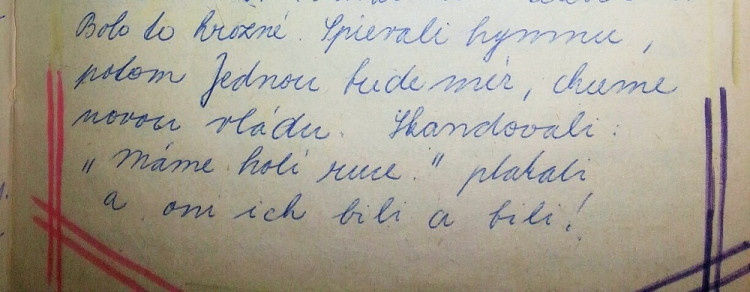 Bolo to hrozné. Spievali hymnu,
potom Jednou bude mír, chceme
novou vládu. Skandovali:
„Máme holí ruce." plakali
a oni ich bili a bili!